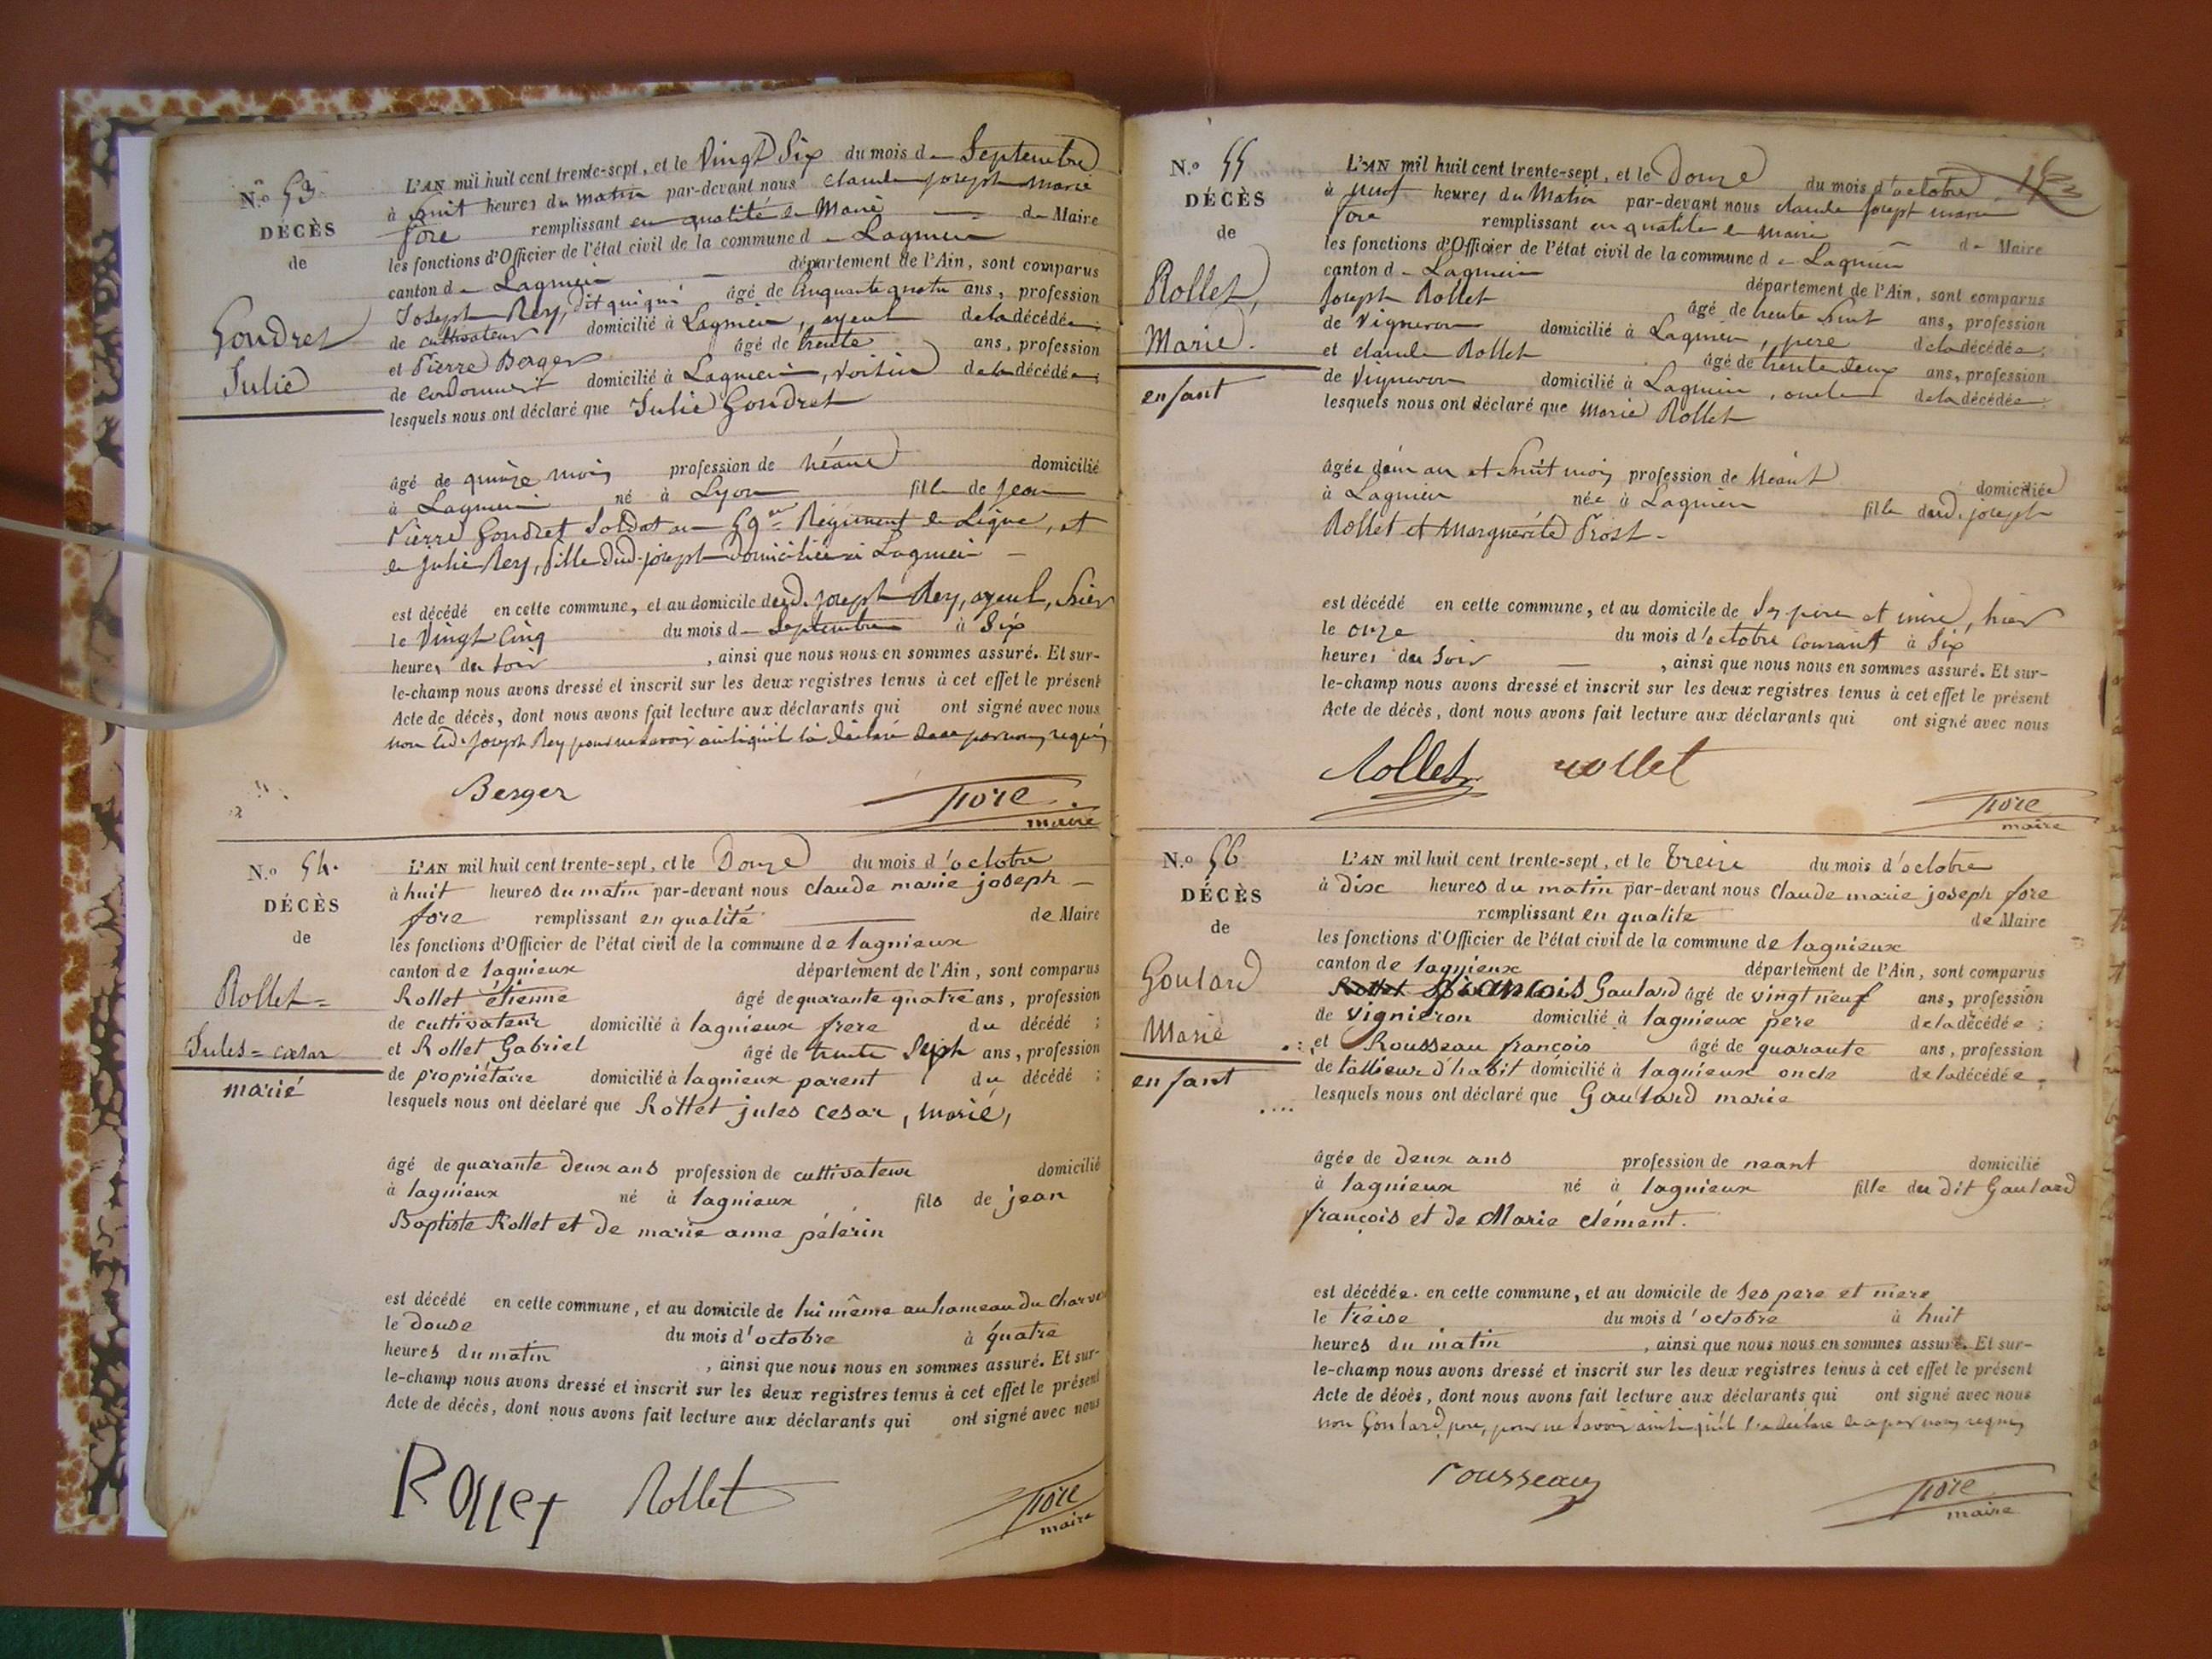 N.o 53
DÉCÈS
de
Gondret
Julie
L'AN mil huit cent trente-sept, et le Vingt Six du mois de Septembre
à huit heures du matin par-devant nous claude joseph marie
fore remplissant en qualité de Maire de Maire
les fonctions d'Officier de l'état civil de la commune de Lagnieu
canton de Lagnieu département de l'Ain, sont comparus
Joseph Rey, dit quiqui âgé de Cinquante quatre ans, profession
de cultivateur domicilié à Lagnieu, ayeul de la décédée;
et Pierre Berger âgé de trente ans, profession
de cordonnier domicilié à Lagnieu, voisin de la décédée;
lesquels nous ont déclaré que Julie Gondret
âgé de quinze mois profession de néant domicilié
à Lagnieu né à Lyon fille de jean
Pierre Gondret Soldat au 59me Régiment de Ligne, et
de julie Rey, fille dud. joseph domiciliée à Lagnieu
est décédé en cette commune, et au domicile dud. joseph Rey, ayeul, hier
le Vingt Cinq du mois de Septembre à Six
heures du soir, ainsi que nous nous en sommes assuré. Et sur-
le-champ nous avons dressé et inscrit sur les deux registres tenus à cet effet le présent
Acte de décès, dont nous avons fait lecture aux déclarants qui ont signé avec nous
non led. Joseph Rey pour ne savoir ainsi qu'il l'a déclaré de ce par nous requis
Berger fore
maire
N.o 54.
DÉCÈS
de
Rollet=
Jules=cæsar
marié
L'AN mil huit cent trente-sept, et le Douze du mois d'octobre
à huit heures du matin par-devant nous claude marie joseph
fore remplissant en qualité de Maire
les fonctions d'Officier de l'état civil de la commune de lagnieux
canton de lagnieux département de l'Ain, sont comparus
Rollet étienne âgé de quarante quatre ans, profession
de cultivateur domicilié à lagnieux frere du décédé;
et Rollet Gabriel âgé de trente Seph ans, profession
de propriétaire domicilié à lagnieux parent du décédé;
lesquels nous ont déclaré que Rollet jules cesar, marié,
âgé de quarante deux ans profession de cultivateur domicilié
à lagnieux né à lagnieux fils de jean
Baptiste Rollet et de marie anne pélerin
est décédé en cette commune, et au domicile de lui même au hameau du
le douse du mois d'octobre à quatre
heures du matin, ainsi que nous nous en sommes assuré. Et sur-
le-champ nous avons dressé et inscrit sur les deux registres tenus à cet effet le présent
Acte de décès, dont nous avons fait lecture aux déclarants qui ont signé avec nous
Rollet Rollet fore
maire
N.o 55
DÉCÈS
de
Rollet,
Marie.
enfant
L'AN mil huit cent trente-sept, et le Douze du mois d'octobre
à neuf heures du Matin par-devant nous claude joseph marie
fore remplissant en qualité de maire de Maire
les fonctions d'Officier de l'état civil de la commune de Lagnieu
canton de Lagnieu département de l'Ain, sont comparus
Joseph Rollet âgé de trente huit ans, profession
de Vigneron domicilié à Lagnieu, pere de la décédée;
et claude Rollet âgé de trente deux ans, profession
de Vigneron domicilié à Lagnieu, oncle de la décédée;
lesquels nous ont déclaré que Marie Rollet
âgée d'un an et huit mois profession de Néant domiciliée
à Lagnieu née à Lagnieu fille dud. joseph
Rollet et Marguerite Prost-
est décédé en cette commune, et au domicile de Ses pere et mere, hier
le onze du mois d'octobre courant à Six
heures du Soir, ainsi que nous nous en sommes assuré. Et sur-
le-champ nous avons dressé et inscrit sur les deux registres tenus à cet effet le présent
Acte de décès, dont nous avons fait lecture aux déclarants qui ont signé avec nous
Rollet rollet
fore
maire
N.o 56
DÉCÈS
de
Goulard
Marie
enfant
L'AN mil huit cent trente-sept, et le treize du mois d'octobre
à dix heures du matin par-devant nous claude marie joseph fore
remplissant en qualite de Maire
les fonctions d'Officier de l'état civil de la commune de lagnieux
canton de lagnieux département de l'Ain, sont comparus
françois Gaulard âgé de vingt neuf ans, profession
de vignieron domicilié à lagnieux pere de la décédée;
et Rousseau françois âgé de quarante ans, profession
de tallieur d'habit domicilié à lagnieux oncle de la décédée;
lesquels nous ont déclaré que Gaulard marie
âgée de deux ans profession de neant domicilié
à lagnieux né à lagnieux fille du dit Gaulard
françois et de Marie clément.
est décédée en cette commune, et au domicile de ses pere et mere
le treise du mois d'octobre à huit
heures du matin, ainsi que nous nous en sommes assuré. Et sur-
le-champ nous avons dressé et inscrit sur les deux registres tenus à cet effet le présent
Acte de décès, dont nous avons fait lecture aux déclarants qui ont signé avec nous
non Goulard pere, pour ne savoir ainsi qu'il l'a déclaré de ce par nous requis
rousseau fore
maire